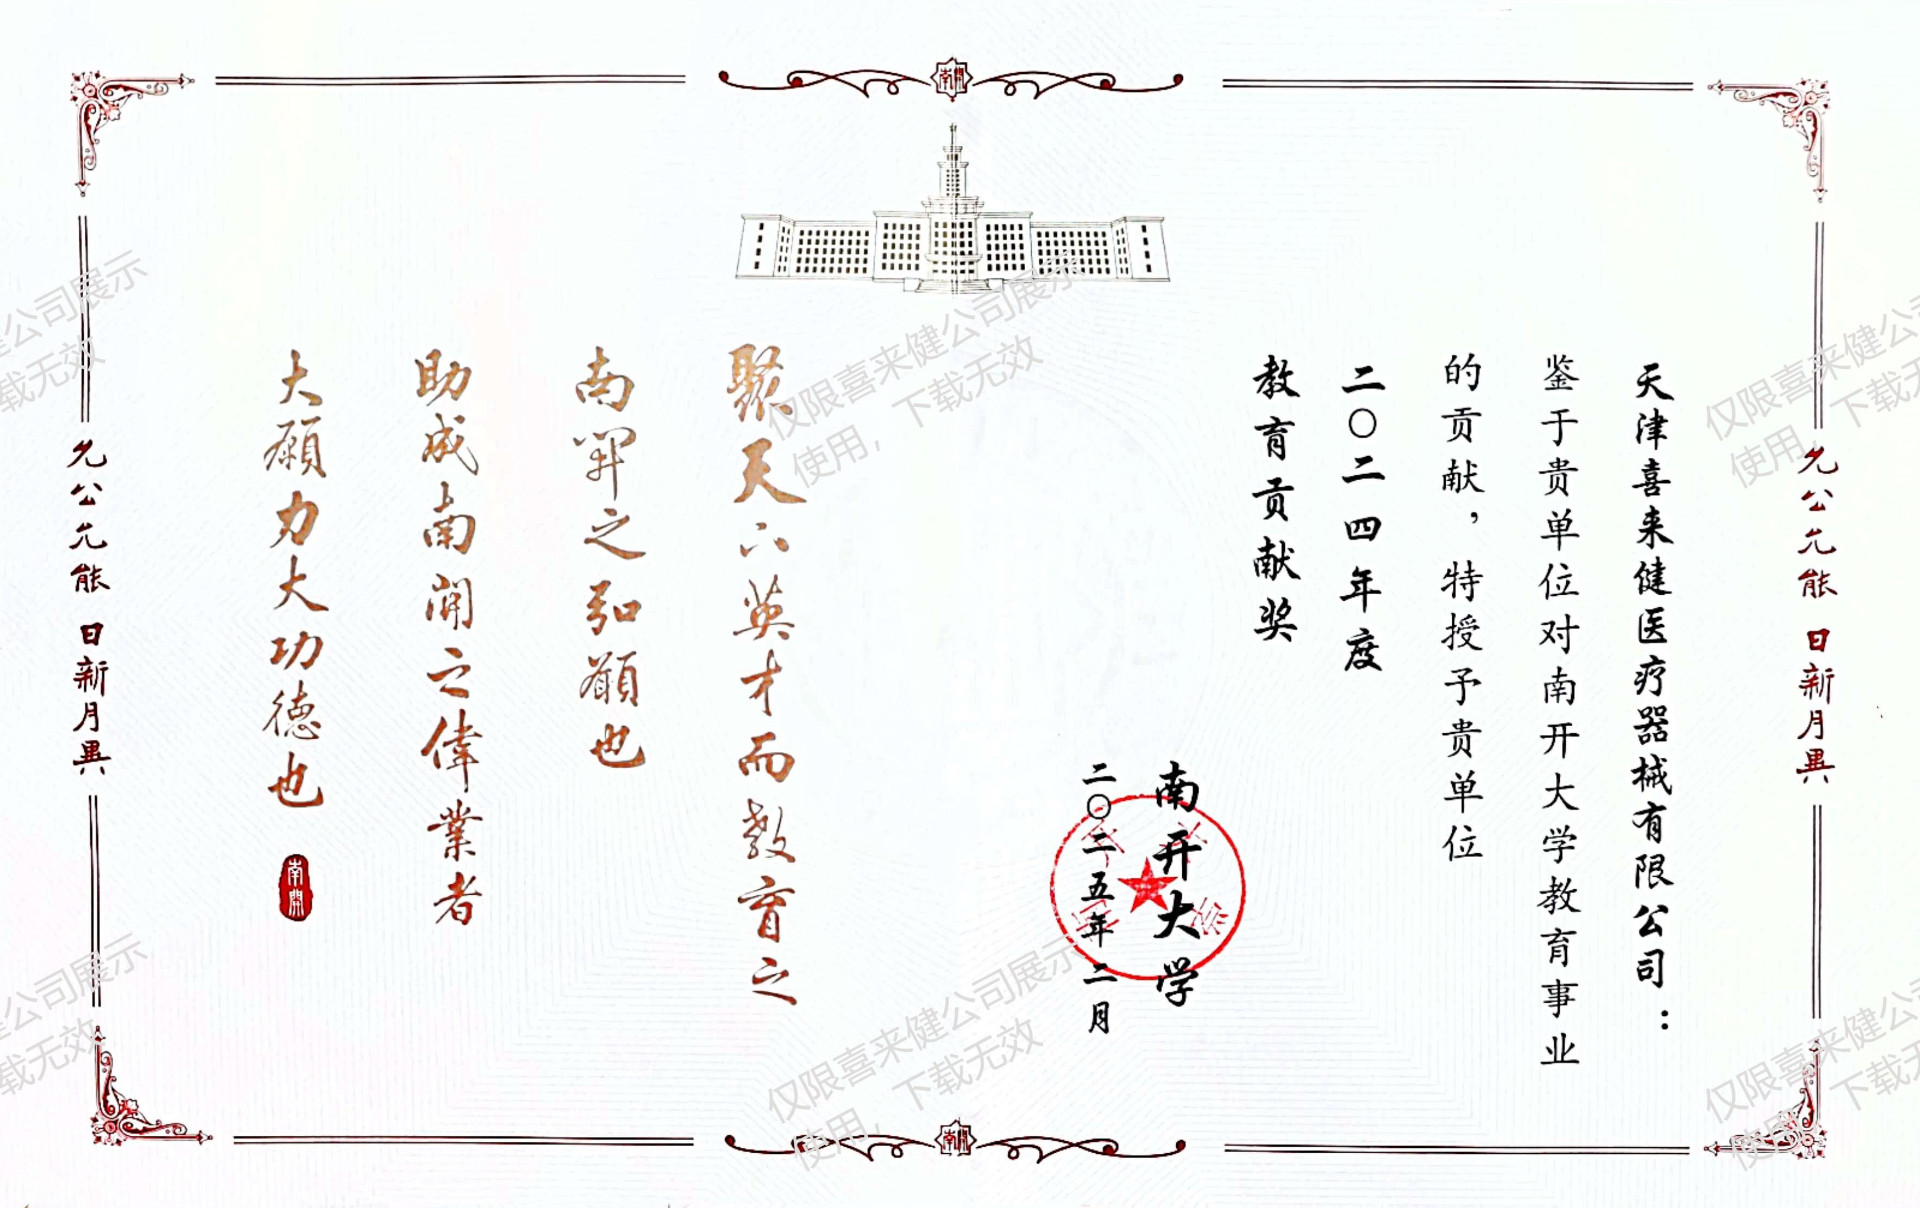 天津喜来健医疗器械有限公司：
鉴于贵单位对南开大学教育事业
的贡献，特授予贵单位
二〇二四年度
教育贡献奖
南开大学
二〇二五年二月
聚天下英才而教育之
南開之弘願也
助成南開之偉業者
大願力大功德也
南開
允公允能 日新月異
允公允能 日新月異
南開
南開
仅限喜来健公司展示
使用，下载无效
仅限喜来健公司展示
使用，下载无效
仅限喜来健公司
使用，下载无
仅限喜来健公司
使用，下载无
健公司展示
载无效
健公司展示
载无效